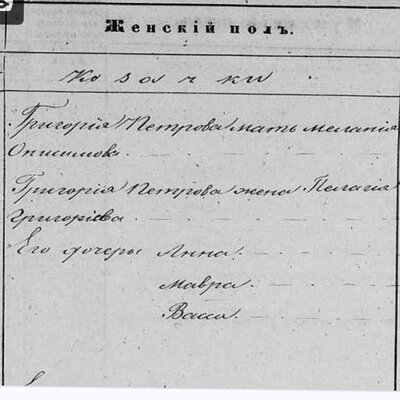 Женскій полъ.
Козачки
Григорія Петрова мать Меланія
Онисимова.
Григорія Петрова жена Пелагія
Григоріева.
Его дочеры Анна.
Мавра.
Васса.